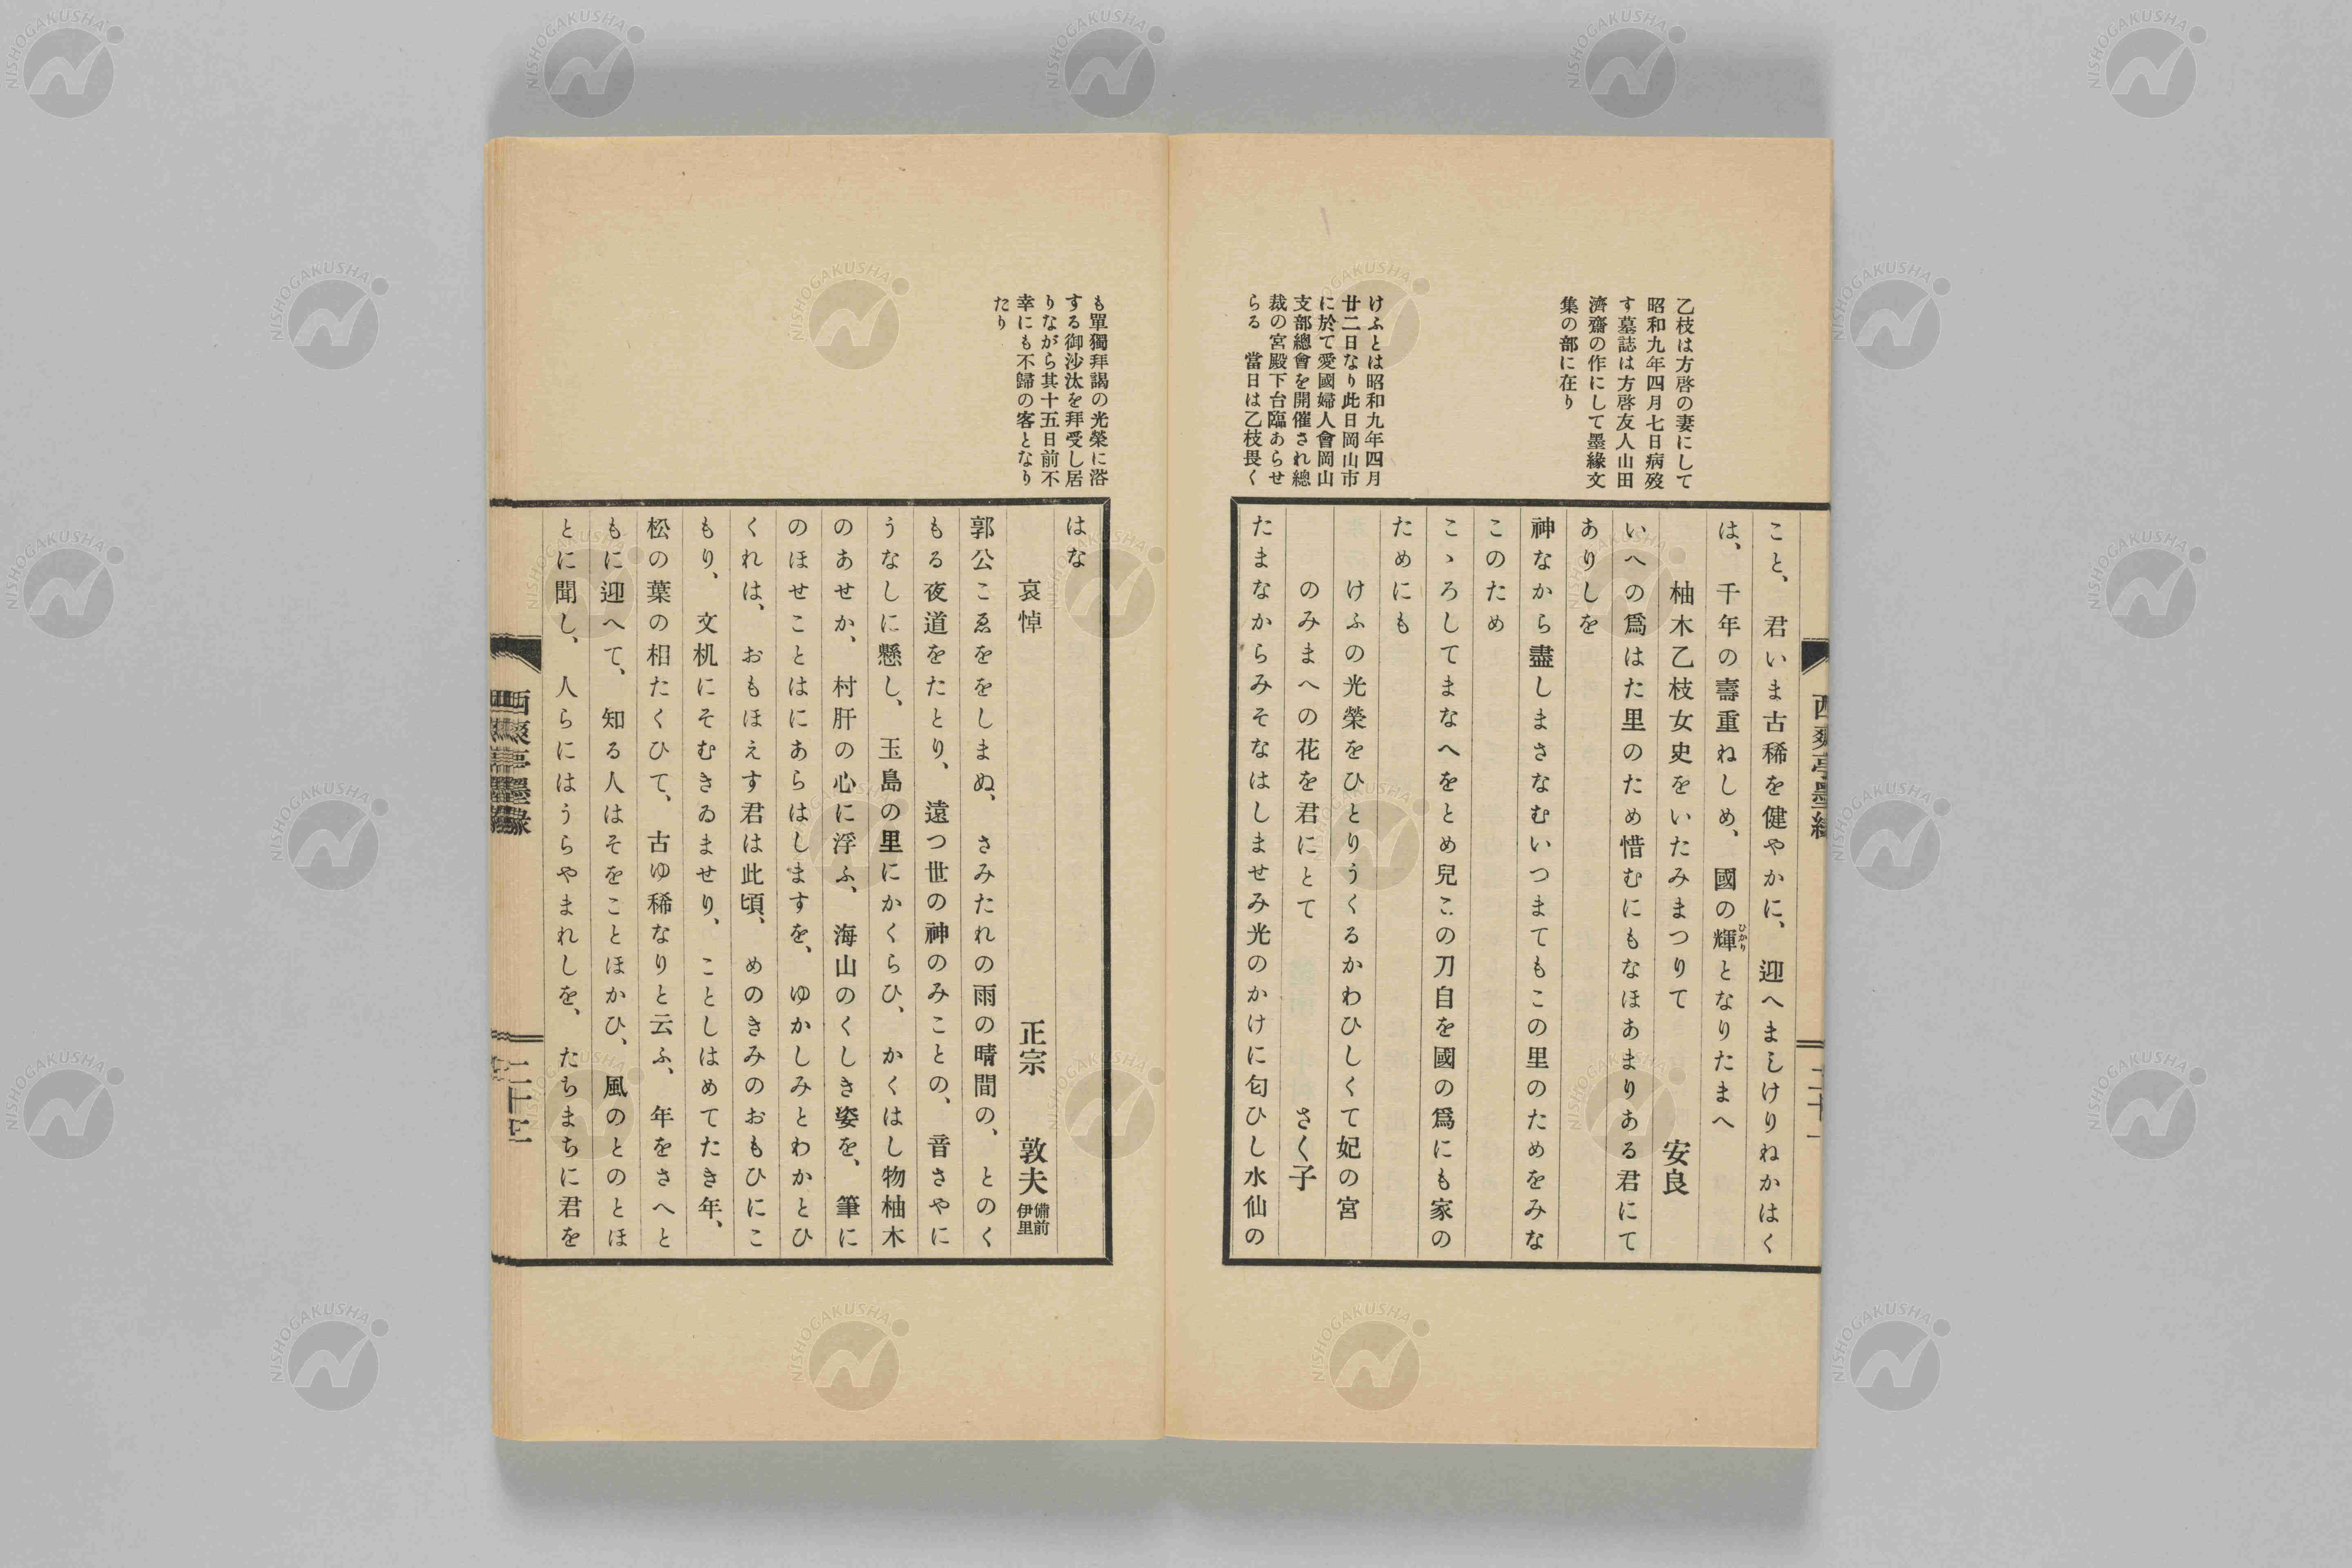 乙枝は方啓の妻にして
昭和九年四月七日病歿
す墓誌は方啓友人山田
濟齋の作にして墨緣文
集の部に在り
けふとは昭和九年四月
廿二日なり此日岡山市
に於て愛國婦人會岡山
支部總會を開催され總
裁の宮殿下台臨あらせ
らる　當日は乙枝畏く
西爽亭墨緣
こと、君いま古稀を健やかに、迎へましけりねかはく
は、千年の壽重ねしめ、國の輝となりたまへ
ひかり
柚木乙枝女史をいたみまつりて　安良
いへの爲はた里のため惜むにもなほあまりある君にて
ありしを
神なから盡しまさなむいつまてもこの里のためをみな
このため
こゝろしてまなへをとめ兒この刀自を國の爲にも家の
ためにも
けふの光榮をひとりうくるかわひしくて妃の宮
のみまへの花を君にとて　さく子
たまなからみそなはしませみ光のかけに匂ひし水仙の
も單獨拜謁の光榮に浴
する御沙汰を拜受し居
りながら其十五日前不
幸にも不歸の客となり
たり
はな
哀悼　正宗　敦夫　備前伊里
郭公こゑををしまぬ、さみたれの雨の晴間の、とのく
もる夜道をたとり、遠つ世の神のみことの、音さやに
うなしに懸し、玉島の里にかくらひ、かくはし物柚木
のあせか、村肝の心に浮ふ、海山のくしき姿を、筆に
のほせことはにあらはしますを、ゆかしみとわかとひ
くれは、おもほえす君は此頃、めのきみのおもひにこ
もり、文机にそむきゐませり、ことしはめてたき年、
松の葉の相たくひて、古ゆ稀なりと云ふ、年をさへと
もに迎へて、知る人はそをことほかひ、風のとのとほ
とに聞し、人らにはうらやまれしを、たちまちに君を
西爽亭墨緣